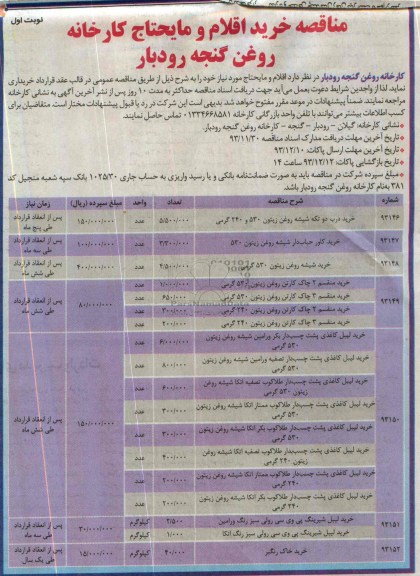 نوبت اول
مناقصه خرید اقلام و مایحتاج کارخانه
روغن گنجه رودبار
کارخانه روغن گنجه رودبار در نظر دارد اقلام و مایحتاج مورد نیاز خود را به شرح ذیل از طریق مناقصه عمومی در قالب عقد قرارداد خریداری
نماید. لذا از واجدین شرایط دعوت بعمل می‌آید جهت دریافت اسناد مناقصه حداکثر به مدت ۱۰ روز پس از نشر آخرین آگهی به نشانی کارخانه
مراجعه نمایند. ضمناً پیشنهادات در موعد مقرر مفتوح خواهد شد. بدیهی است این شرکت در رد یا قبول پیشنهادات مختار است. متقاضیان برای
کسب اطلاعات بیشتر می‌توانند با تلفن واحد بازرگانی کارخانه ۰۱۳۳۴۶۶۸۵۸۱ تماس حاصل نمایند.
*نشانی کارخانه: گیلان - رودبار - گنجه - کارخانه روغن گنجه رودبار.
* تاریخ آخرین مهلت دریافت مدارک اسناد مناقصه ۹۳/۱۱/۳۰
* تاریخ آخرین مهلت ارسال پاکات: ۹۳/۱۲/۱۰
* تاریخ بازگشایی پاکات: ۹۳/۱۲/۱۲ ساعت ۱۴
*مبلغ سپرده شرکت در مناقصه باید به صورت ضمانت‌نامه بانکی و یا رسید واریزی به حساب جاری ۱۰۲۵/۳۰ بانک سپه شعبه منجیل کد
۳۸۱ به‌نام کارخانه روغن گنجه رودبار باشد.
شماره شرح مناقصه تعداد واحد مبلغ سپرده (ریال) زمان نیاز
۹۳۱۴۶ خرید درب دو تکه شیشه روغن زیتون ۵۳۰ و ۲۴۰ گرمی ۵/۵۰۰/۰۰۰ عدد ۱۵۰/۰۰۰/۰۰۰ پس از انعقاد قرارداد طی پنج ماه
۹۳۱۴۷ خرید کاور حباب‌دار شیشه روغن زیتون ۵۳۰ ۳/۲۰۰/۰۰۰ عدد ۱۰۰/۰۰۰/۰۰۰ پس از انعقاد قرارداد طی سه ماه
۹۳۱۴۸ خرید شیشه روغن زیتون ۵۳۰ گرمی ۴/۵۰۰/۰۰۰ عدد ۴۰۰/۰۰۰/۰۰۰ پس از انعقاد قرارداد طی شش ماه
۹۳۱۴۹ خرید منقسم ۲ چاک کارتن روغن زیتون ۵۳۰ گرمی ۱/۰۰۰/۰۰۰ عدد ۸۰/۰۰۰/۰۰۰ پس از انعقاد قرارداد طی شش ماه
خرید منقسم ۳ چاک کارتن روغن زیتون ۵۳۰ گرمی ۶۵۰/۰۰۰ عدد
خرید منقسم ۲ چاک کارتن روغن زیتون ۲۴۰ گرمی ۳۰۰/۰۰۰ عدد
خرید منقسم ۳ چاک کارتن روغن زیتون ۲۴۰ گرمی ۲۰۰/۰۰۰ عدد
۹۳۱۵۰ خرید لیبل کاغذی پشت چسب‌دار بکر ورامین شیشه روغن زیتون ۵۳۰ گرمی ۶/۰۰۰/۰۰۰ عدد ۱۵۰/۰۰۰/۰۰۰ پس از انعقاد قرارداد طی شش ماه
خرید لیبل کاغذی پشت چسب‌دار تصفیه ورامین شیشه روغن زیتون ۵۳۰ گرمی ۸۰۰/۰۰۰ عدد
خرید لیبل کاغذی پشت چسب‌دار طلاکوب تصفیه اتکا شیشه روغن زیتون ۵۳۰ گرمی ۶۰۰/۰۰۰ عدد
خرید لیبل کاغذی پشت چسب‌دار طلاکوب ممتاز اتکا شیشه روغن زیتون ۵۳۰ گرمی ۳۰۰/۰۰۰ عدد
خرید لیبل کاغذی پشت چسب‌دار طلاکوب بکر اتکا شیشه روغن زیتون ۵۳۰ گرمی ۳۰۰/۰۰۰ عدد
خرید لیبل کاغذی پشت چسب‌دار طلاکوب تصفیه اتکا شیشه روغن زیتون ۲۴۰ گرمی ۴۰۰/۰۰۰ عدد
خرید لیبل کاغذی پشت چسب‌دار طلاکوب ممتاز اتکا شیشه روغن زیتون ۲۴۰ گرمی ۲۰۰/۰۰۰ عدد
خرید لیبل کاغذی پشت چسب‌دار طلاکوب بکر اتکا شیشه روغن زیتون ۲۴۰ گرمی ۲۰۰/۰۰۰ عدد
۹۳۱۵۱ خرید لیبل شیرینگ پی وی سی رولی سبز رنگ ورامین ۲/۵۰۰ کیلوگرم ۳۰/۰۰۰/۰۰۰ پس از انعقاد قرارداد طی سه ماه
خرید لیبل شیرینگ پی وی سی رولی سبز رنگ اتکا ۱/۰۰۰ کیلوگرم
۹۳۱۵۲ خرید خاک رنگبر ۴۰/۰۰۰ کیلوگرم ۱۵/۰۰۰/۰۰۰ پس از انعقاد قرارداد طی یک سال